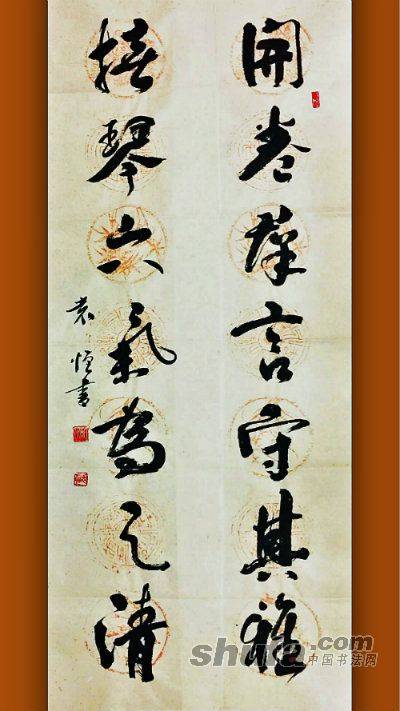 開卷群言守其雅
撫琴六氣為之清
袁恒書
shufa.com
中国书法网